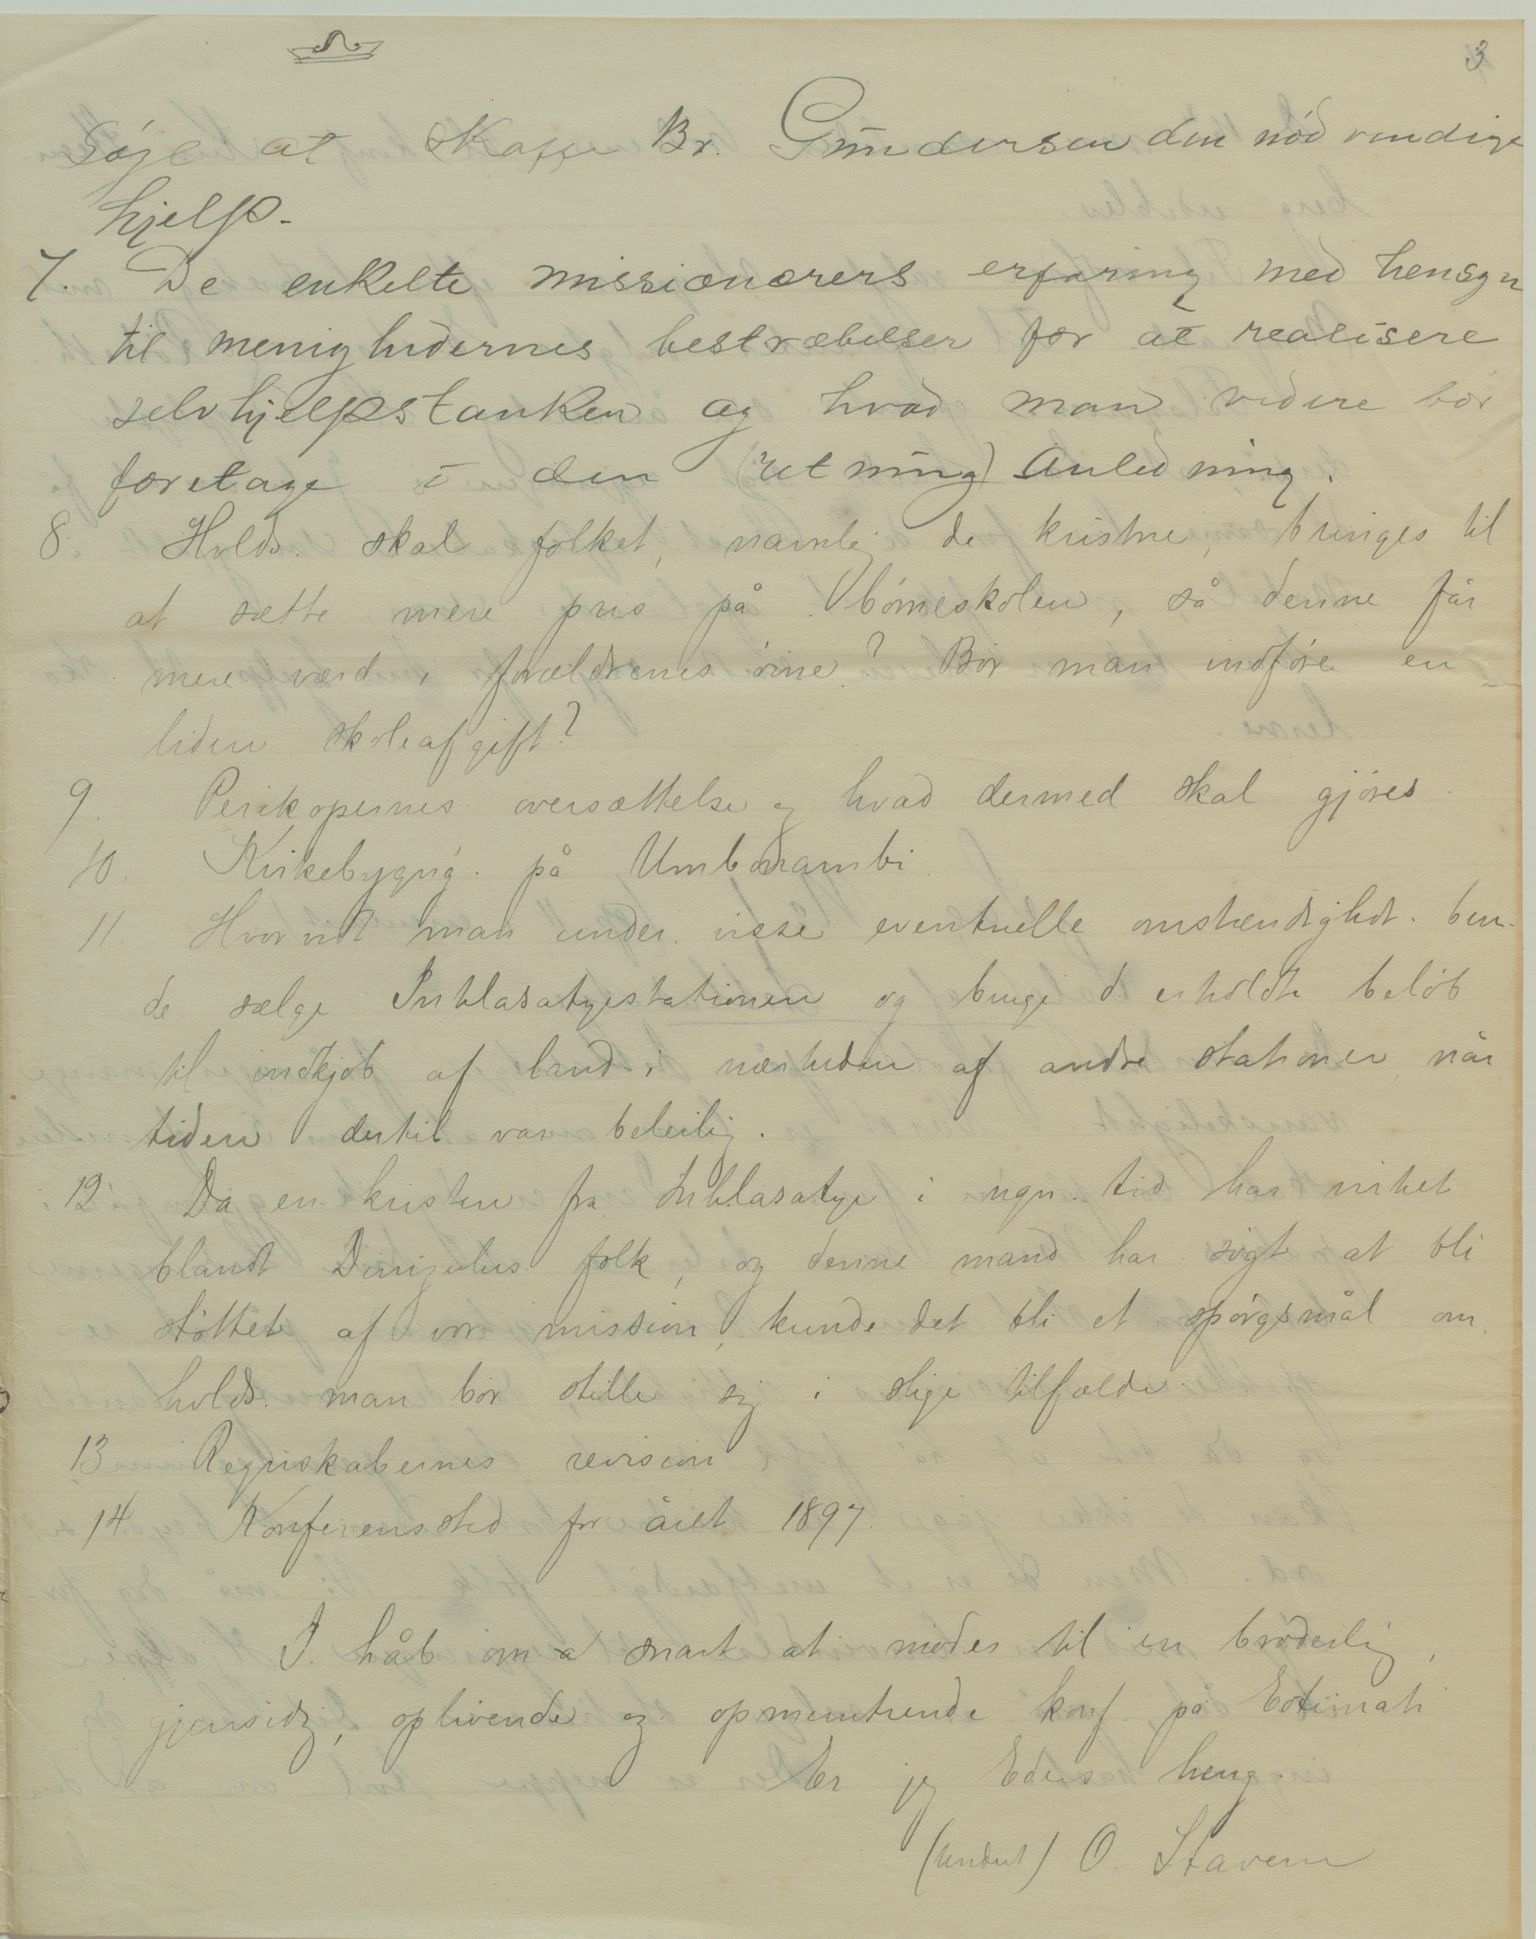 3
Söge at skaffe Br. Gundersen den nödvendige
hjelp.
7. De enkelte missionærers erfaring med hensyn
til menighedernes bestræbelser for at realisere
selvhjelpstanken og hvad man videre bör
foretage i den (retning) Anledning.
8. Hvlds. skal folket, navnlig de kristne, bringes til
at sætte mere pris på börneskolen, så denne får
mere værd i forældrenes öine? Bör man indføre en
liden skoleafgift?
9. Perikopernes oversættelse og hvad dermed skal gjöres.
10. Kirkebygng. på Umbonambi
11. Hvorvidt man under visse eventuelle omstændighdr. bur-
de sælge Inhlasatyestationen og bruge d. erholdte belöb
til indkjöb af land i nærheden af andre stationer når
tiden dertil var beleilig.
12. Da en kristen fra Inhlasatye i ngn. tid har virket
blandt Dinizulus folk, og denne mand har sögt at bli
stöttet af vor mission, kunde det bli et spörgsmål om
hvlds. man bör stille sig i slige tilfælde.
13 Regnskabernes revision
14 Konferenssted for året 1897.
I håb om snart at mödes til en broderlig,
gjensidig, oplivende og opmuntrende konf. på Eotimati
er jeg Eders heng.
(undert) O. Stavem